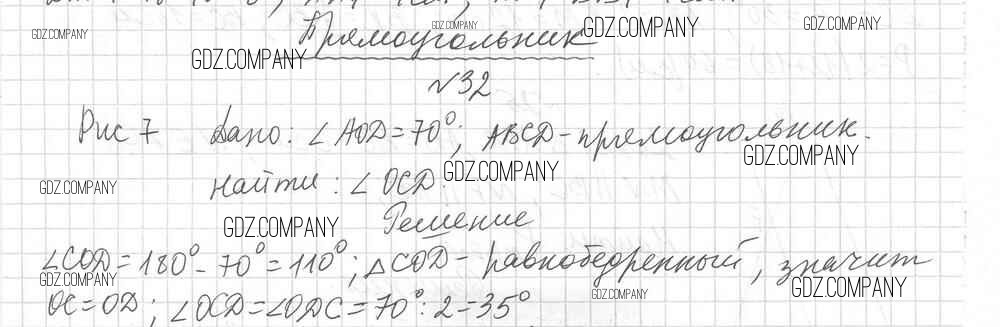 GDZ.COMPANY GDZ.COMPANY GDZ.COMPANY GDZ.COMPANY
Прямоугольник
GDZ.COMPANY
№32
Рис 7 Дано: ∠AOD=70°; ABCD-прямоугольник.
GDZ.COMPANY
Найти: ∠OCD.
GDZ.COMPANY GDZ.COMPANY
Решение
GDZ.COMPANY
∠COD=180°-70°=110°; △COD-равнобедренный, значит
GDZ.COMPANY GDZ.COMPANY GDZ.COMPANY
OC=OD; ∠OCD=∠ODC=70°:2=35°